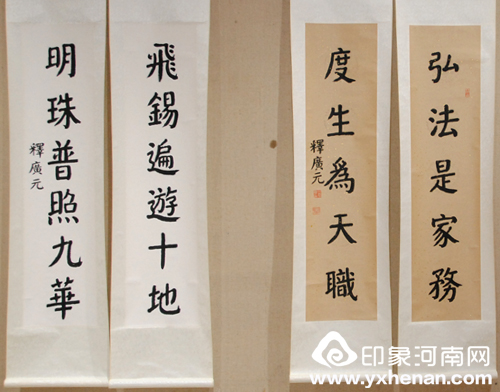 弘法是家務
度生爲天職
釋廣元
飛錫遍遊十地
明珠普照九華
釋廣元
印象河南网
www.yxhenan.com